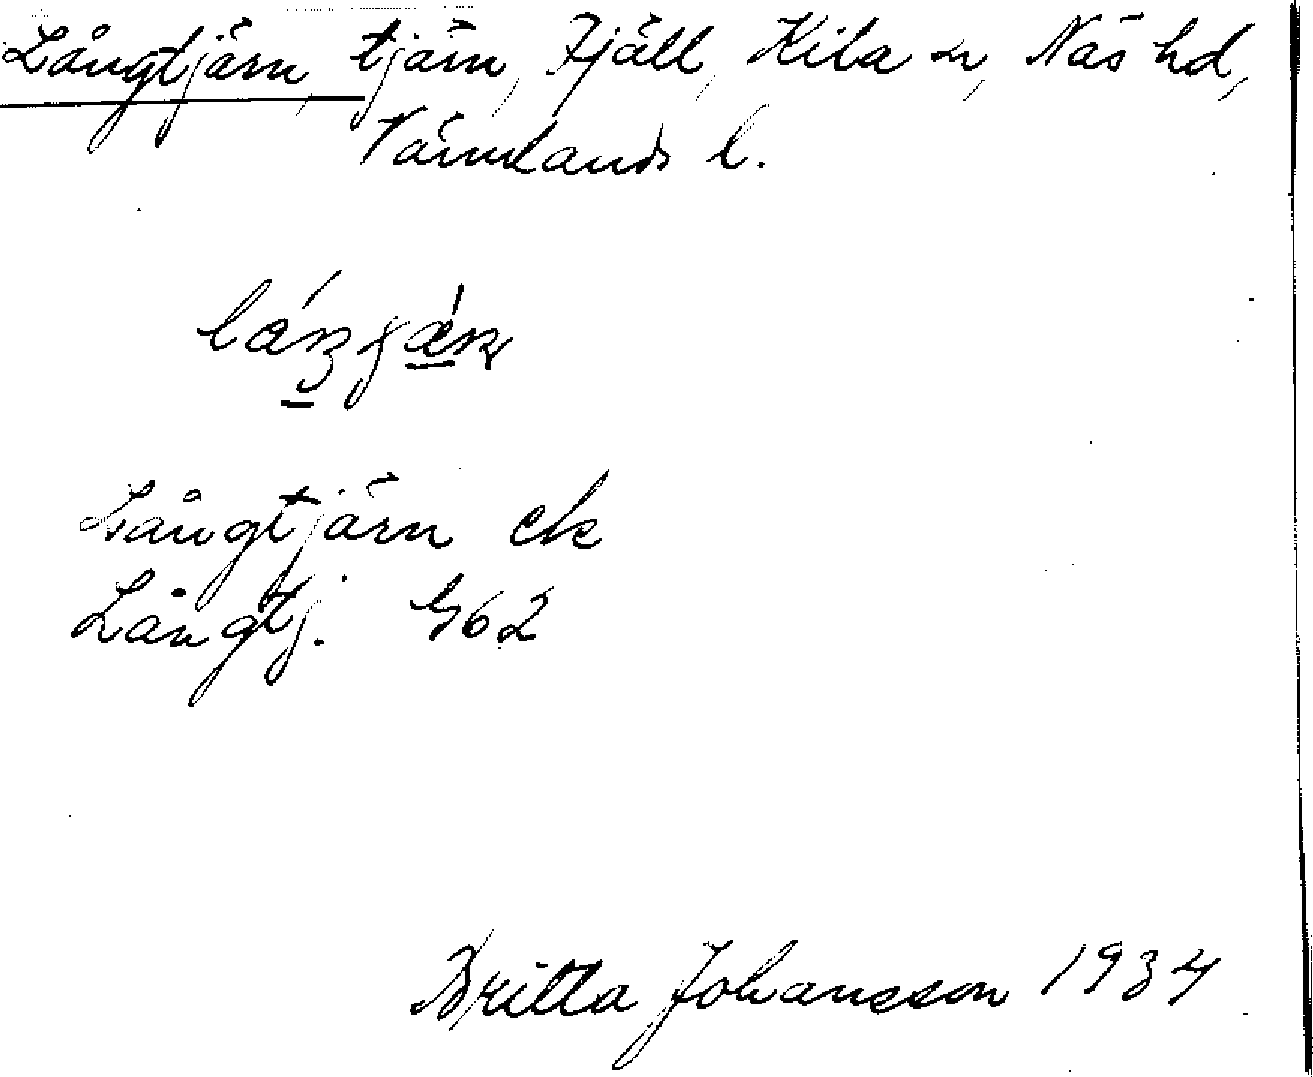 Långtjärn, tjärn, Fjäll, Kila sn, Näs hd,
Värmlands l.
Långtjärn ek
Långtj. G62
Britta Johansson 1934